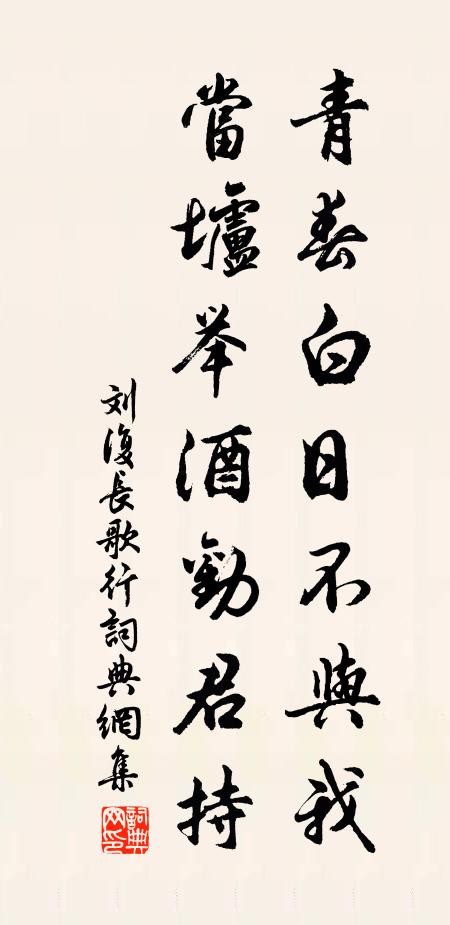 青春白日不與我
當壚举酒勸君持
刘復長歌行詞典網集
詞典
网印